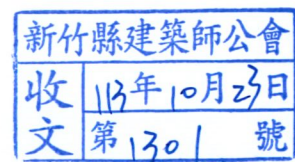 新竹縣建築師公會
收文
113年10月23日
第1301號